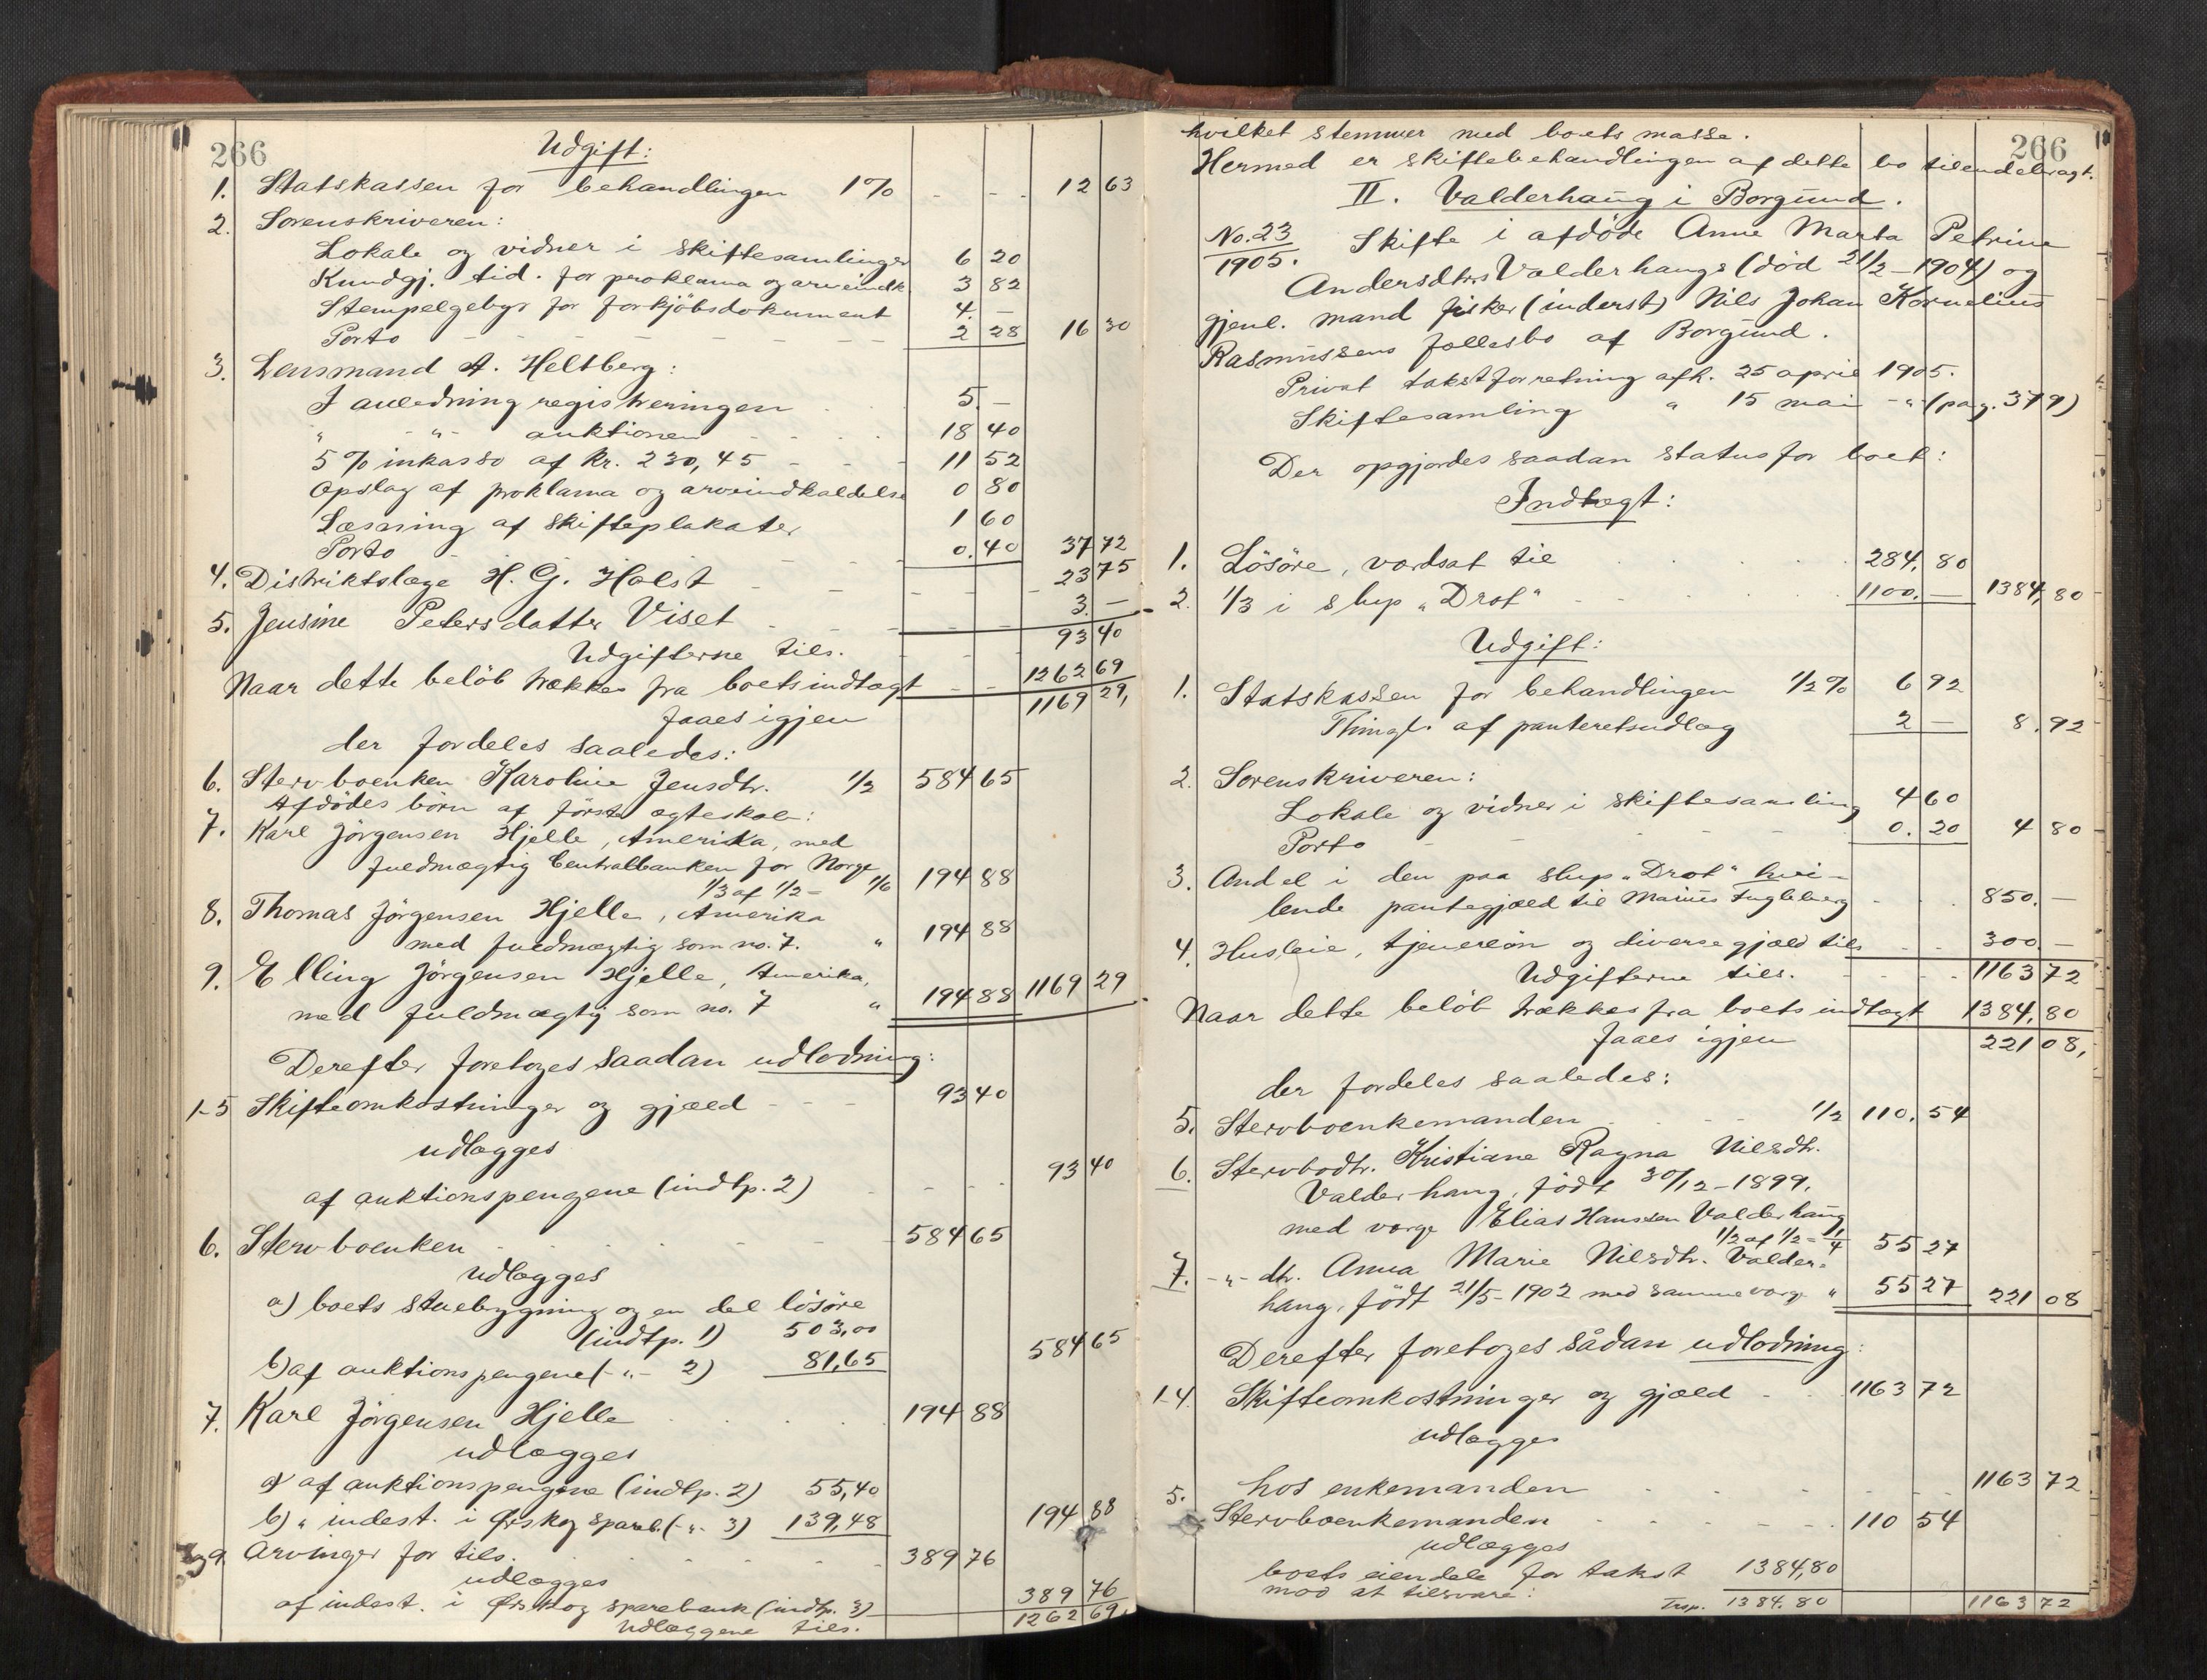 266
Udgift:
1. Statskassen for behandlingen 1% 12 63
2. Sorenskriveren:
Lokale og vidner i skiftesamlinger 6 20
Kundgj. tid. for proklama og arveindk. 3 82
Stempelgebyr for forkjöbsdokument 4. —
Porto 2 28 16 30
3. Lensmand A. Heltberg:
I anledning registreringen 5. —
" -"- auktionen 18 40
5% inkasso af kr. 230,45 11 52
Opslag af proklama og arveindkaldelse 0 80
Læsning af skifteplakater 1 60
Porto 0.40 37 72
4. Distriktslæge H. G. Holst 23 75
5. Jensine Petersdatter Viset 3. —
Udgifterne tils. 93 40
Naar dette belöb trækkes fra boets indtægt 1262 69
faaes igjen 1169 29,
der fordeles saaledes:
6. Stervboenken Karoline Jensdtr. 1/2 584 65
Afdödes börn af förste ægteskab:
7. Karl Jörgensen Hjelle, Amerika, med
fuldmægtig Centralbanken for Norge
1/3 af 1/2 = 1/6 194 88
8. Thomas Jörgensen Hjelle, Amerika
med fuldmægtig som no. 7. " 194 88
9. Elling Jörgensen Hjelle, Amerika,
med fuldmægtig som no. 7 " 194 88 1169 29
Derefter foretoges saadan udlodning:
1-5 Skifteomkostninger og gjæld 93 40
udlægges
af auktionspengene (indtp. 2) 93 40
6. Stervboenken 584 65
Udlægges
a) boets stuebygning og en del lösöre
(indtp. 1) 503,00
b) af auktionspengene (-"- 2) 81,65 584 65
7. Karl Jörgensen Hjelle 194 88
udlægges
a) af auktionspengene (indtp. 2) 55,40
b) " indest. i Ørskog spareb. (-"- 3) 139,48 194 88
9 Arvinger for tils. 389 76
udlægges
af indest. i Ørskog sparebank (indtp. 3) 389 76
Udlæggene tils. 1262 69,
hvilket stemmer med boets masse.
266
Hermed er skiftebehandlingen af dette bo tilendebragt.
II. Valderhaug i Borgund.
No. 23
1905. Skifte i afdöde Anne Marta Petrine
Andersdtrs Valderhaugs (död 21/2-1904) og
gjenl. mand fisker (inderst) Nils Johan Kornelius
Rasmussens fællesbo af Borgund.
Privat takstforretning afh. 25 april 1905.
Skiftesamling " 15 mai -"- (pag. 379)
Der opgjordes saadan status for boet:
Indtægt:
1. Lösöre, værdsat til 284. 80
2. 1/3 i slup "Drot" 1100. — 1384, 80
Udgift:
1. Statskassen for behandlingen 1/2% 6 92
Thingl. af panteretsudlæg 2 — 8. 92
2. Sorenskriveren:
Lokale og vidner i skiftesamling 4 60
Porto 0. 20 4 80
3. Andel i den paa slup "Drot" hvi-
lende pantegjæld til Marius Fugleberg 850. —
4. Husleie, tjenerlön og diverse gjæld tils 300. —
Udgifterne tils. 1163 72
Naar dette belöb trækkes fra boets indtægt 1384, 80
faaes igjen 221 08,
der fordeles saaledes:
5. Stervboenkemanden 1/2 110. 54
6. Stervbodtr. Kristiane Ragna Nilsdtr.
Valderhaug, födt 30/12-1899,
med værge Elias Hanssen Valderhaug
1/2 af 1/2 = 1/4 55 27
7. -"- dtr. Anna Marie Nilsdtr. Valder-
haug, födt 21/5-1902 med samme værge " 55 27 221 08
Derefter foretoges sådan udlodning:
1-4. Skifteomkostninger og gjæld 1163 72
udlægges
hos enkemanden 1163 72
5. Stervboenkemanden 110 54
udlægges
boets eiendele for takst 1384,80
mod at tilsvare:
Trsp. 1384.80 1163 72